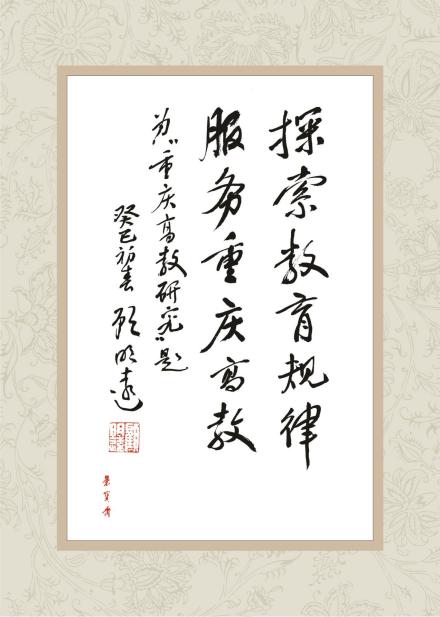 探索教育规律
服务重庆高教
为“重庆高教研究”题
癸巳初春 顾明远